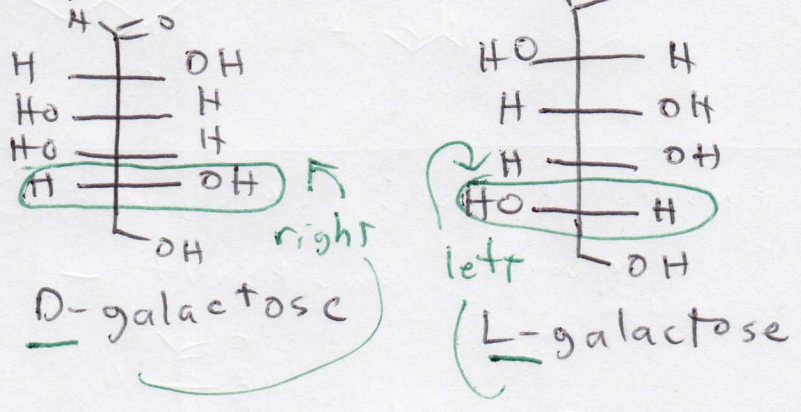 H O
H OH
HO H
HO H
H OH
OH
right
D-galactose
HO H
H OH
H OH
HO H
left
OH
L-galactose